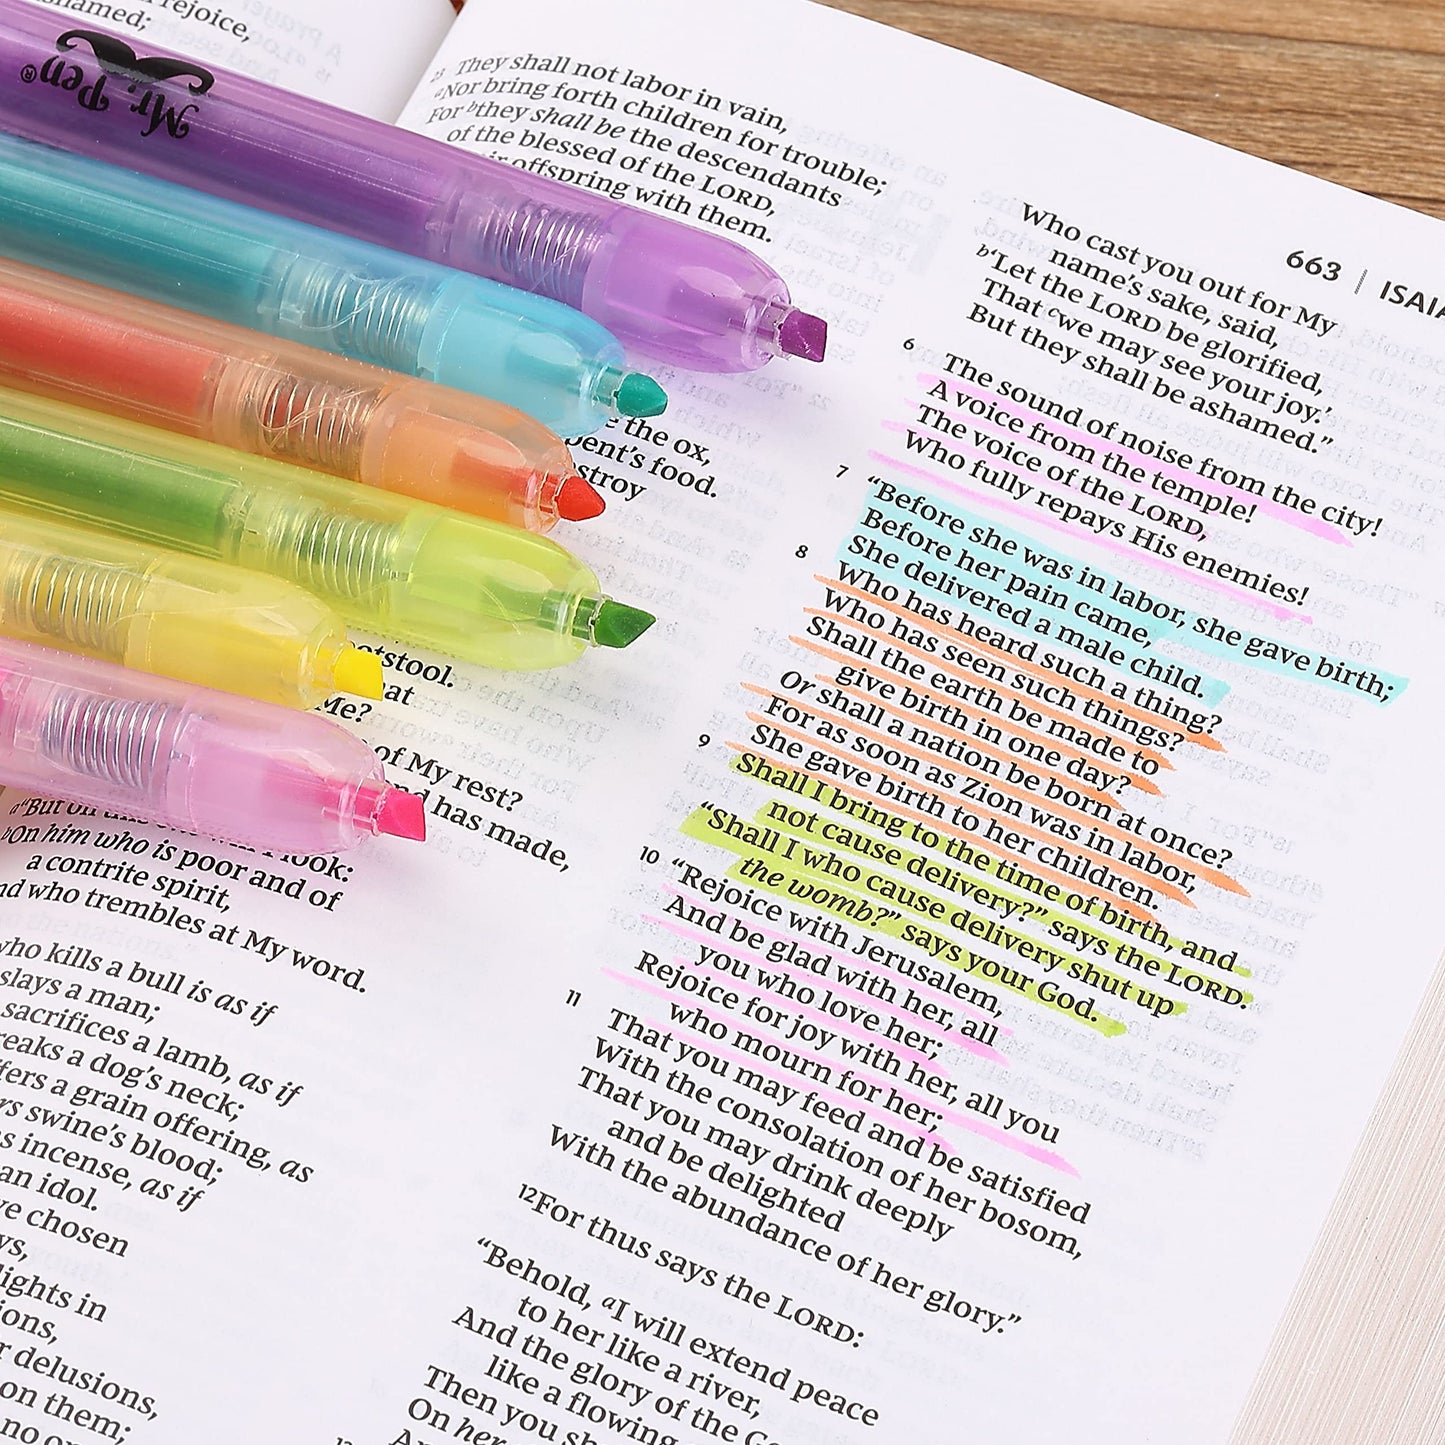 rejoice,
ashamed;
Mr. Pen®
23 They shall not labor in vain,
aNor bring forth children for trouble;
For bthey shall be the descendants
of the blessed of the LORD,
offspring with them.
the ox,
food.
of My rest?
has made,
look:
bOn him who is poor and of
a contrite spirit,
who trembles at My word.
who kills a bull is as if
slays a man;
sacrifices a lamb, as if
breaks a dog's neck;
offers a grain offering, as
swine's blood;
incense, as if
an idol.
chosen
delights in
delusions,
on them;
663 | ISAIA
Who cast you out for My
name's sake, said,
b'Let the LORD be glorified,
That cwe may see your joy.'
But they shall be ashamed."
6 The sound of noise from the city!
A voice from the temple!
The voice of the LORD,
Who fully repays His enemies!
7 "Before she was in labor, she gave birth;
Before her pain came,
She delivered a male child.
8 Who has heard such a thing?
Who has seen such things?
Shall the earth be made to
give birth in one day?
Or shall a nation be born at once?
For as soon as Zion was in labor,
She gave birth to her children.
9 Shall I bring to the time of birth, and
not cause delivery?" says the LORD.
"Shall I who cause delivery shut up
the womb?" says your God.
10 "Rejoice with Jerusalem,
And be glad with her, all
you who love her;
Rejoice for joy with her, all you
who mourn for her;
11 That you may feed and be satisfied
With the consolation of her bosom,
That you may drink deeply
and be delighted
With the abundance of her glory."
12For thus says the LORD:
"Behold, aI will extend peace
to her like a river,
And the glory of the
like a flowing
Then you
On her